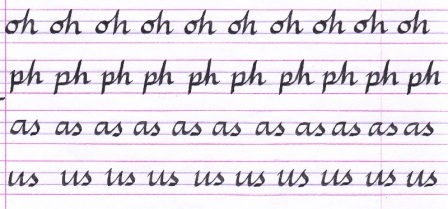 oh oh oh oh oh oh oh oh oh oh
ph ph ph ph ph ph ph ph ph ph
as as as as as as as as as as
us us us us us us us us us us